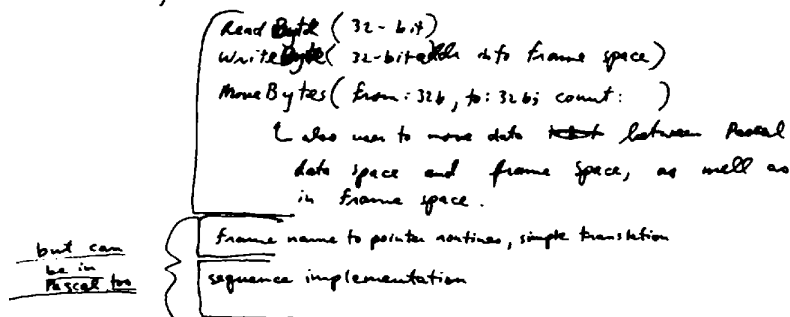 Read Byte (32-bit)
WriteByte( 32-bit addr into frame space)
MoveBytes( from: 32b, to: 32b; count: )
also uses to move data between Pascal
data space and frame space, as well as
in frame space.
frame name to pointer routines, simple translation
but can
be in
Pascal too
sequence implementation